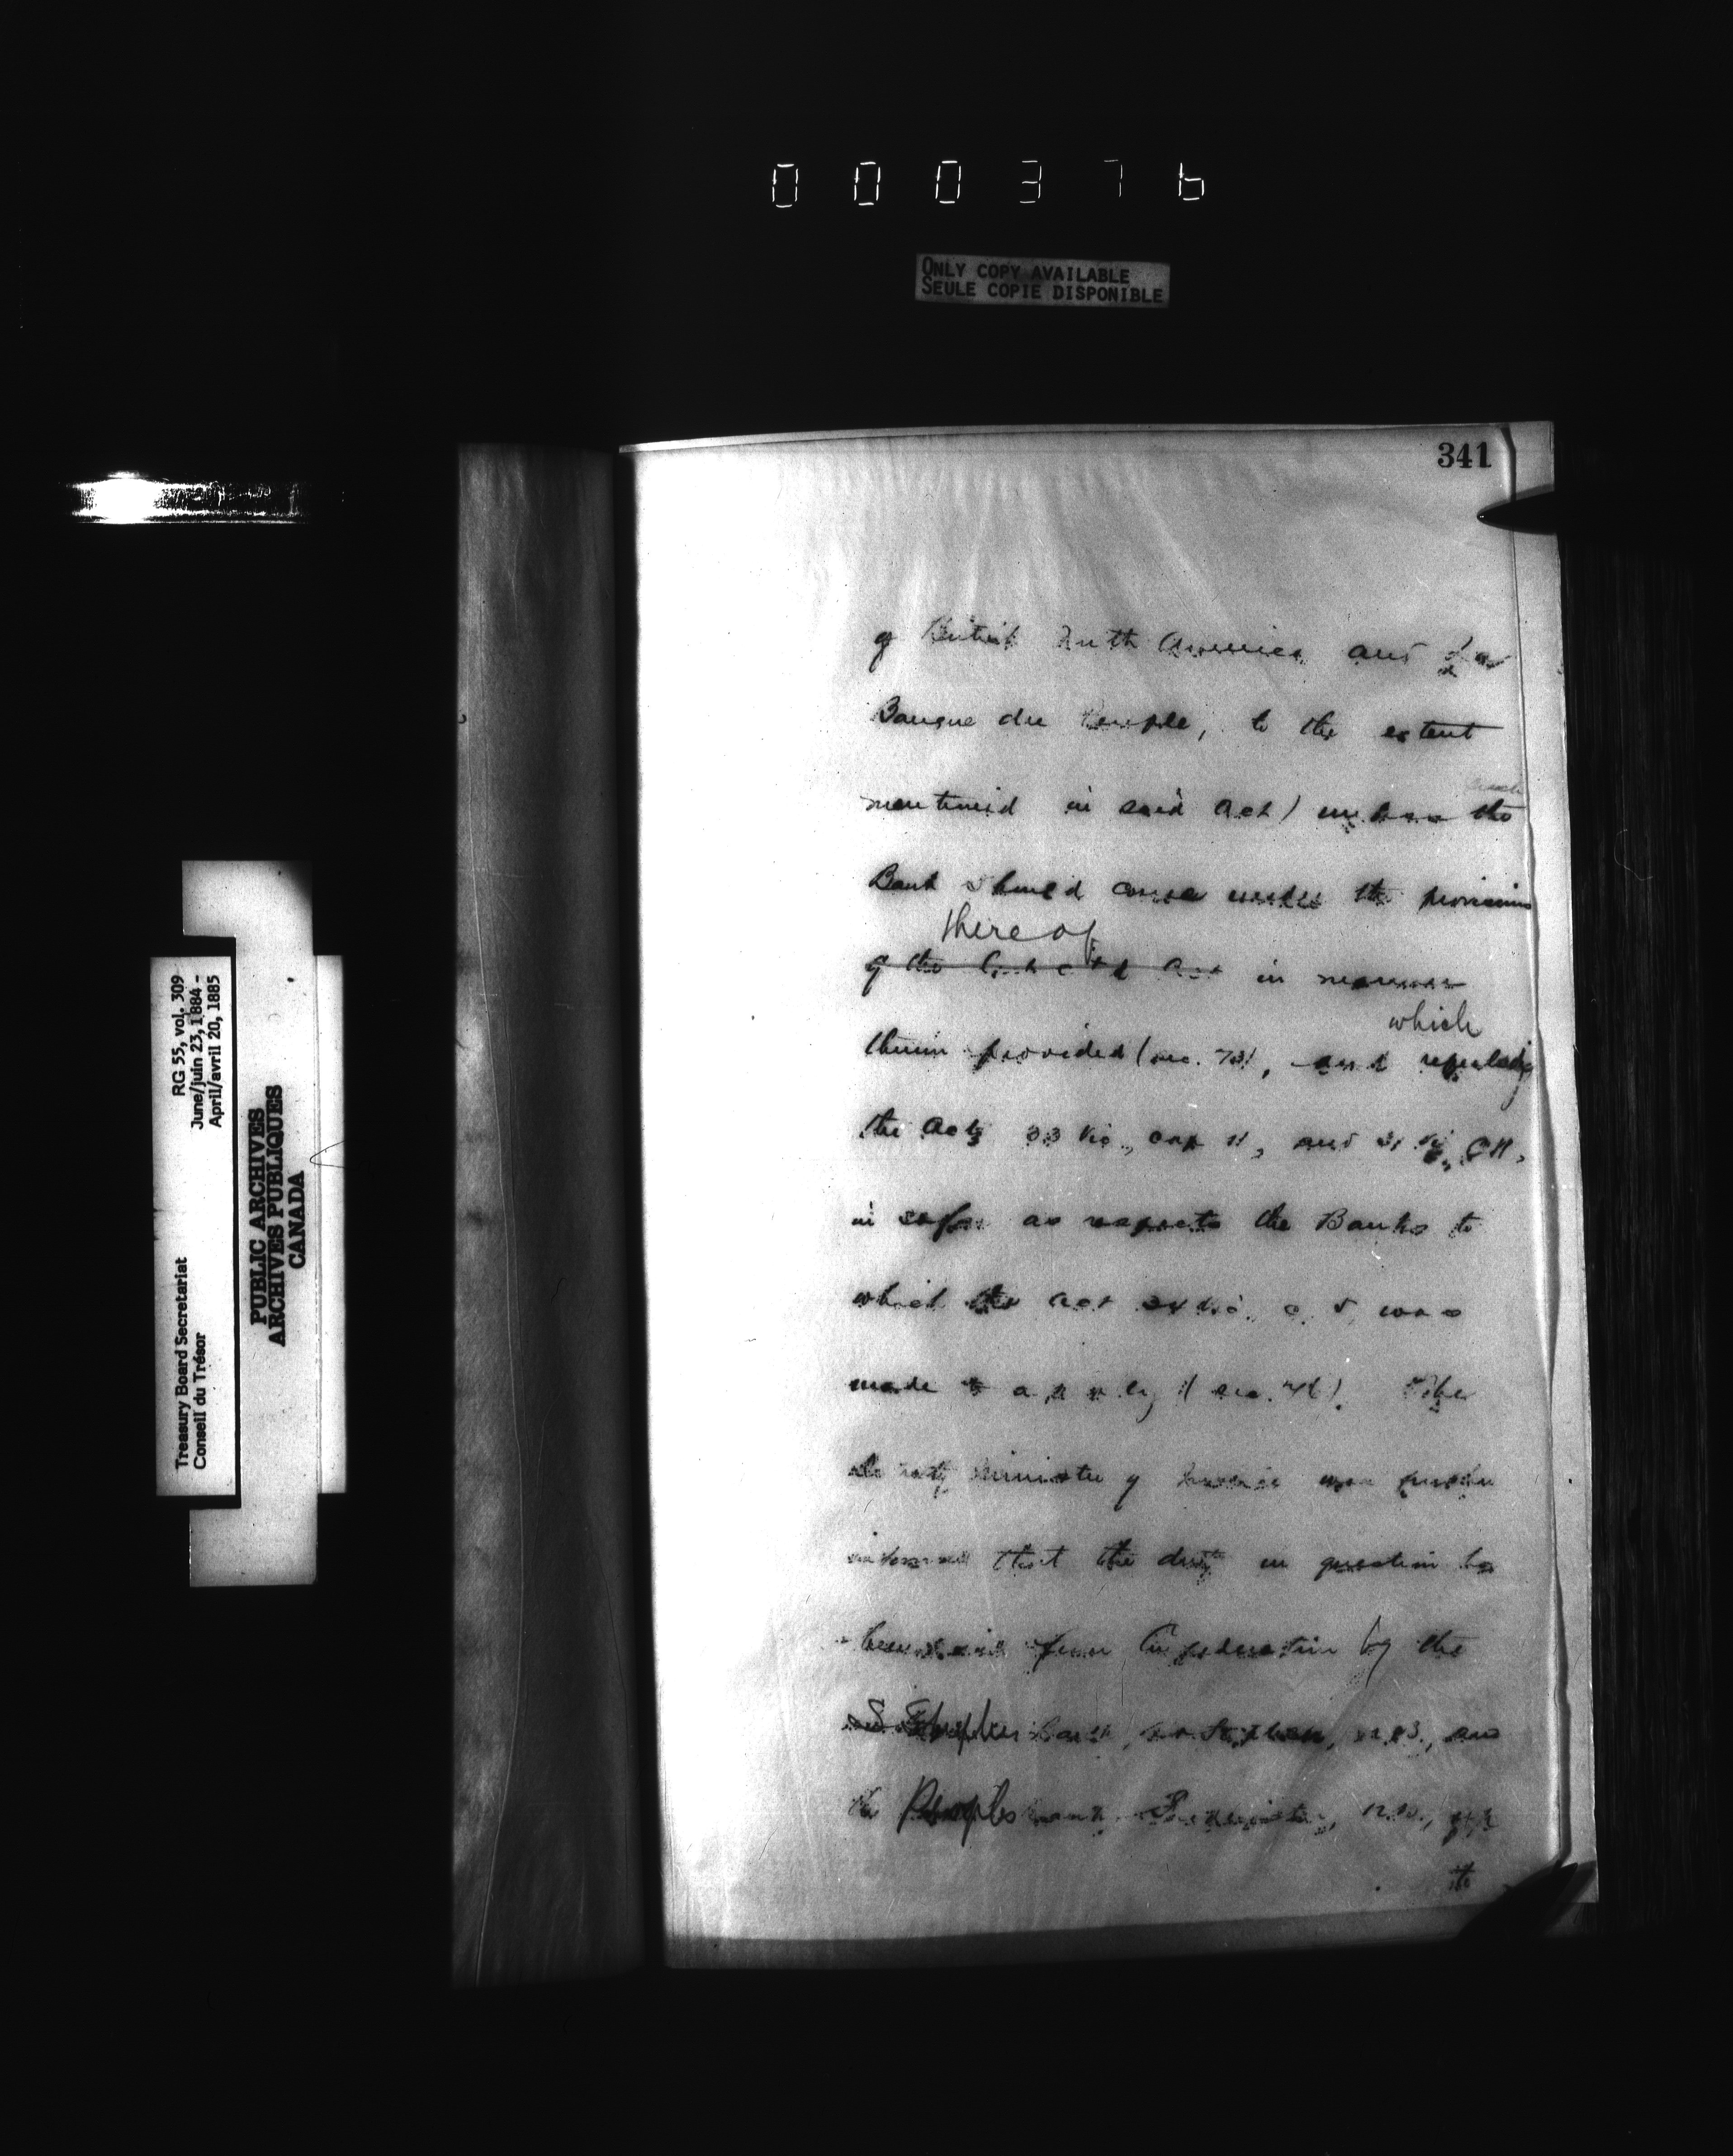 000376
ONLY COPY AVAILABLE
SEULE COPIE DISPONIBLE
341
of British North America and La
Banque du Peuple, to the extent
mentioned in said Act) unless the
Bank should come under the provisions
thereof
of the Act in manner
which
therein provided (sec. 73), and repealing
the Acts 33 Vic., cap 11, and 31 Vic, C 11,
in so far as respects the Banks to
which the Act 34 Vic., c. 5, was
made to apply (sec. 76). The
Deputy Minister of Finance was further
informed that the duty in question has
been paid from Confederation by the
St Stephen Bank, St. Stephen, N.B., and
the Peoples Bank, Fredericton, N.B.,
the
RG 55, vol. 309
June/juin 23, 1884 -
April/avril 20, 1885
Treasury Board Secretariat
Conseil du Trésor
PUBLIC ARCHIVES
ARCHIVES PUBLIQUES
CANADA